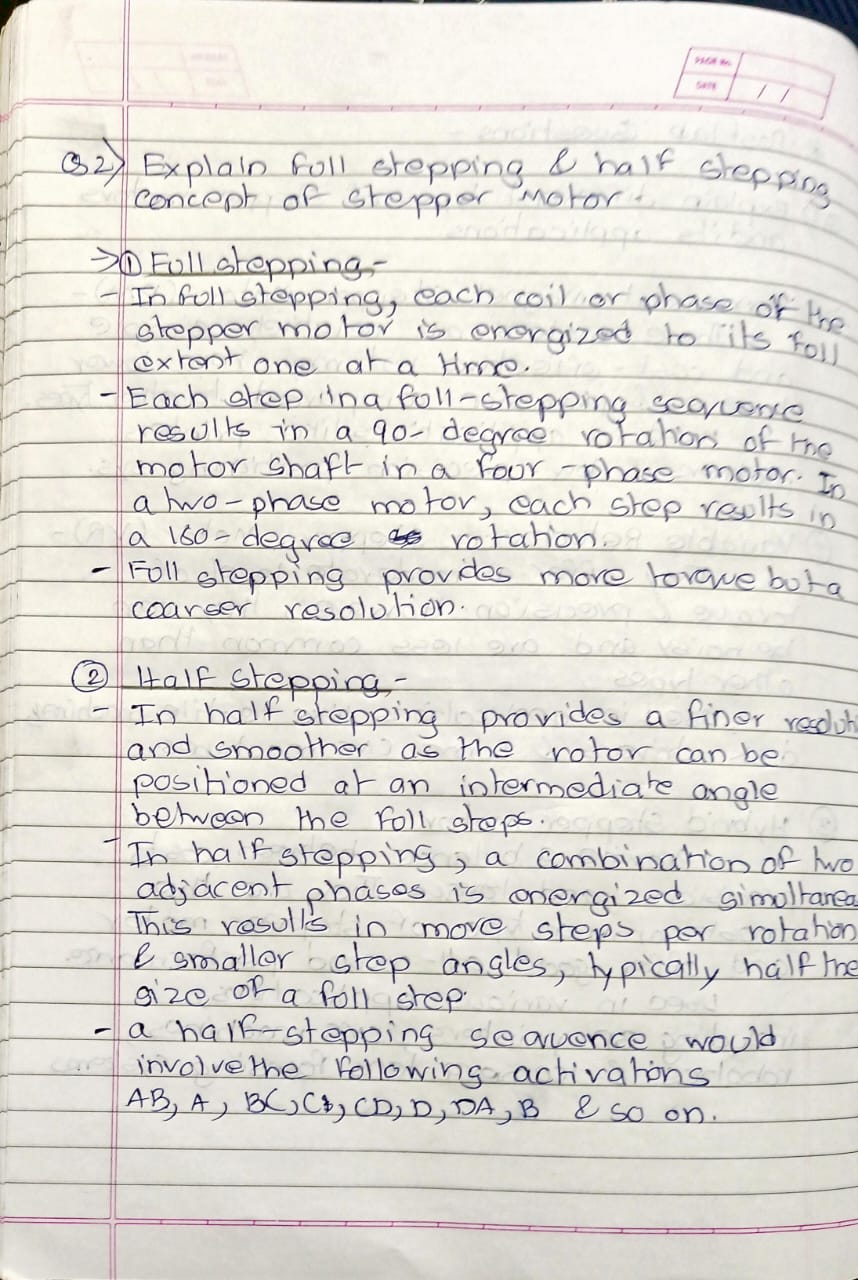 PAGE No.
DATE / /
Q2) Explain full stepping & half stepping
concept of stepper motor.
→① Full stepping,-
- In full stepping, each coil or phase of the
stepper motor is energized to its full
extent one at a time.
- Each step in a full-stepping sequence
results in a 90- degree rotation of the
motor shaft in a four-phase motor. In
a two-phase motor, each step results in
a 180- degree rotation.
- Full stepping provides more torque but a
coarser resolution.
② Half stepping,-
- In half stepping provides a finer resoluti
and smoother as the rotor can be
positioned at an intermediate angle
between the full steps.
- In half stepping, a combination of two
adjacent phases is energized simultanea
This results in more steps per rotation
& smaller step angles, typically half the
size of a full step.
- a half-stepping sequence would
involve the following activations
AB, A, BC, C, CD, D, DA, B & so on.